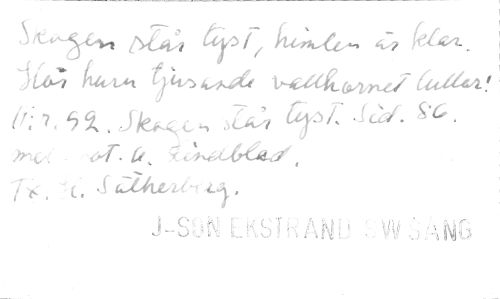 Skogen står tyst, himlen är klar.
Hör huru tjusande vallhornet lullar!
11.7.92. Skogen står tyst. Sid. 86.
not. A. Lindblad.
Tx. H. Sätherberg.
J-SON EKSTRAND SW SÅNG